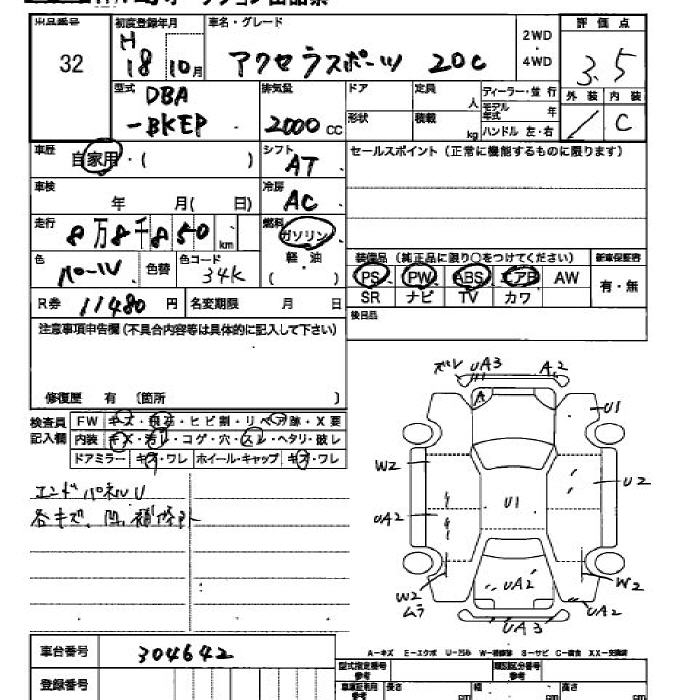 出品番号 初度登録年月 車名・グレード 2WD・4WD 評価点
32 H 18 10月 アクセラスポーツ 20C 3.5
型式 DBA-BKEP 排気量 2000 CC ドア 定員 人 ディーラー・並行 外装 内装
形状 積載 kg モデル年式 年 ハンドル 左・右 C
車歴 自家用・( ) シフト AT セールスポイント（正常に機能するものに限ります）
車検 年 月( 日) 冷房 AC
走行 8万8千850 km 燃料 ガソリン 軽・油 ( )
色 パール 色替 色コード 34K
装備品（純正品に限り○をつけてください） 新車保証書
PS PW ABS エアB AW 有・無
SR ナビ TV カワ
R券 11480円 名変期限 月 日 後日品
注意事項申告欄（不具合内容等は具体的に記入して下さい）
修復歴 有 〔箇所 〕
検査員記入欄 FW キズ・飛石・ヒビ割・リペア跡・X要
内装 キズ・汚レ・コゲ・穴・スレ・ヘタリ・破レ
ドアミラー キズ・ワレ ホイール・キャップ キズ・ワレ
エンドパネルU
各キズ、凹、補修跡
ズレ UA3 A2
A
U1
W2
U2
UA2
U1
W2
ムラ
UA2
W2
UA2
UA3
A-キズ E-エクボ U-凹み W-補修跡 S-サビ C-腐食 XX-交換済
車台番号 304642
登録番号
型式指定番号 参考 類別区分番号 参考
長さ cm 幅 cm 高さ cm